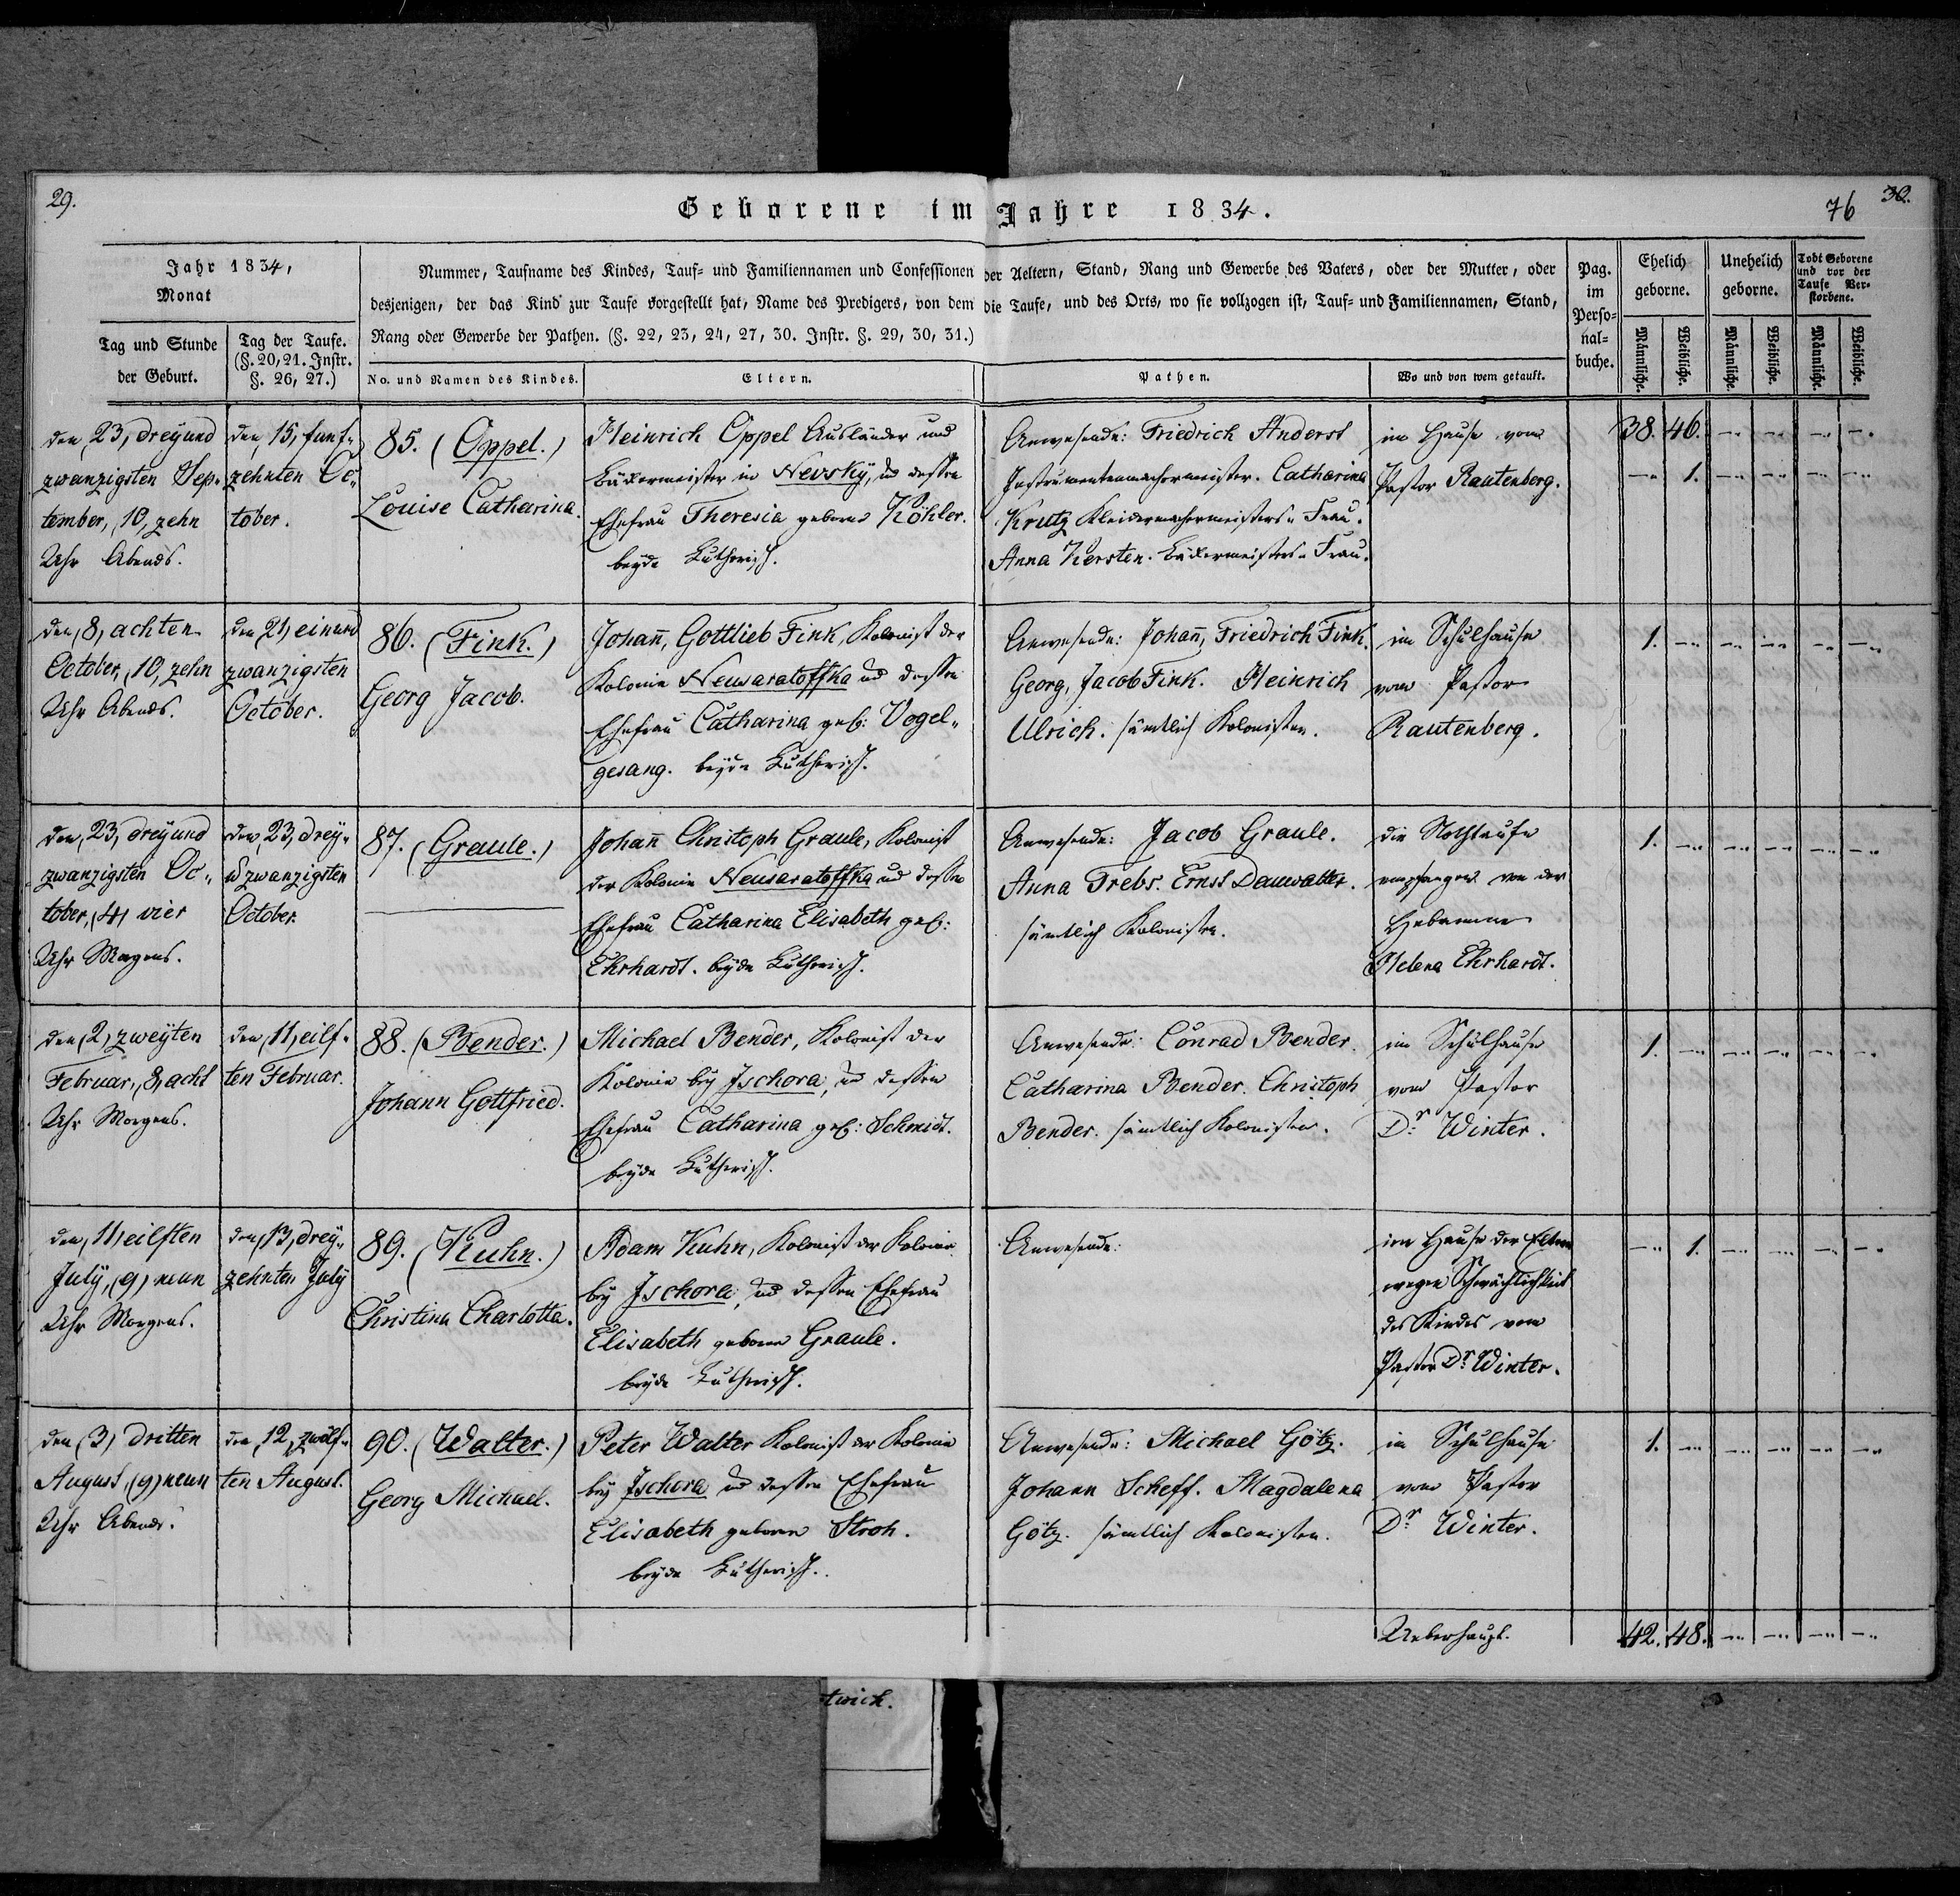 29.
Geborene im Jahre 1834.
76
30.
Jahr 1834,
Monat
Tag und Stunde
der Geburt.
Tag der Taufe.
(§. 20, 21. Instr.
§. 26, 27.)
Nummer, Taufname des Kindes, Tauf- und Familiennamen und Confessionen der Aeltern, Stand, Rang und Gewerbe des Vaters, oder der Mutter, oder
desjenigen, der das Kind zur Taufe vorgestellt hat, Name des Predigers, von dem die Taufe, und des Orts, wo sie vollzogen ist, Tauf- und Familiennamen, Stand,
Rang oder Gewerbe der Pathen. (§. 22, 23, 24, 27, 30. Instr. §. 29, 30, 31.)
No. und Namen des Kindes.
Eltern.
Pathen.
Wo und von wem getauft.
Pag.
im
Perso-
nal-
buche.
Ehelich
geborne.
Unehelich
geborne.
Todt Geborene
und vor der
Taufe Ver-
storbene.
Männliche.
Weibliche.
Männliche.
Weibliche.
Männliche.
Weibliche.
den, 23, dreyund
zwanzigsten Sep„
tember, 10, zehn
Uhr Abends.
den, 15, funf„
zehnten Oc„
tober.
85. (Oppel.)
Louise Catharina.
Heinrich Oppel Ausländer und
Bäkermeister in Nevsky, und dessen
Ehefrau Theresia geborne Köhler.
beyde Lutherisch.
Anwesende: Friedrich Anderst
Instrumentenmachermeister. Catharina
Krutz Kleidermachermeisters„ Frau.
Anna Kersten. Bäkermeisters„ Frau.
im Hause vom
Pastor Rautenberg.
38. 46. —„ —„ —„ —„
—„ 1. —„ —„ —„ —„
den, 8, achten
October, 10, zehn
Uhr Abends.
den 21, einund
zwanzigsten
October.
86. (Fink.)
Georg Jacob.
Johañ, Gottlieb Fink, Kolonist der
Kolonie Neusaratoffka und dessen
Ehefrau Catharina geb: Vogel„
gesang. beyde Lutherisch.
Anwesende: Johañ, Friedrich Fink.
Georg, Jacob Fink. Heinrich
Ulrich. sämtlich Kolonisten.
im Schulhause
vom Pastor
Rautenberg.
1. —„ —„ —„ —„ —„
den, 23, dreyund
zwanzigsten Oc„
tober, (4) vier
Uhr Morgens.
den, 23, drey„
u zwanzigsten
October.
87. (Graule.)
Johañ Christoph Graule, Kolonist
der Kolonie Neusaratoffka und dessen
Ehefrau Catharina Elisabeth geb:
Ehrhardt. beyde Lutherisch.
Anwesende: Jacob Graule.
Anna Trebs. Ernst Dauwalter.
sämtlich Kolonisten.
die Nothtaufe
empfangen von der
Hebamme
Helena Ehrhardt.
1. —„ —„ —„ —„ —„
den (2, zweyten
Februar, 8, acht
Uhr Morgens.
den, 11, eilf„
ten Februar.
88. (Bender.)
Johann Gottfried.
Michael Bender, Kolonist der
Kolonie bey Ischora, und dessen
Ehefrau Catharina geb: Schmidt.
beyde Lutherisch.
Anwesende: Conrad Bender.
Catharina Bender. Christoph
Bender. sämtlich Kolonisten.
im Schulhause
vom Pastor
Dr Winter.
1. —„ —„ —„ —„ —„
den, 11, eilften
July, (9) neun
Uhr Morgens.
den, 13, drey„
zehnten July
89. (Kuhn.)
Christina Charlotta.
Adam Kuhn, Kolonist der Kolonie
bey Ischora, und dessen Ehefrau
Elisabeth geborne Graule.
beyde Lutherisch.
Anwesende:
im Hause der Eltern
wegen Schwächlichkeit
des Kindes vom
Pastor Dr Winter.
—„ 1. —„ —„ —„ —„
den (3) dritten
August, (9) neun
Uhr Abends.
den, 12, zwölf„
ten August.
90. (Walter.)
Georg Michael.
Peter Walter Kolonist der Kolonie
bey Ischora und dessen Ehefrau
Elisabeth geborne Stroh.
beyde Lutherisch.
Anwesende: Michael Götz.
Johann Scheff. Magdalena
Götz. sämtlich Kolonisten.
im Schulhause
vom Pastor
Dr Winter.
1. —„ —„ —„ —„ —„
Ueberhaupt.
42. 48. —„ —„ —„ —„
twich.